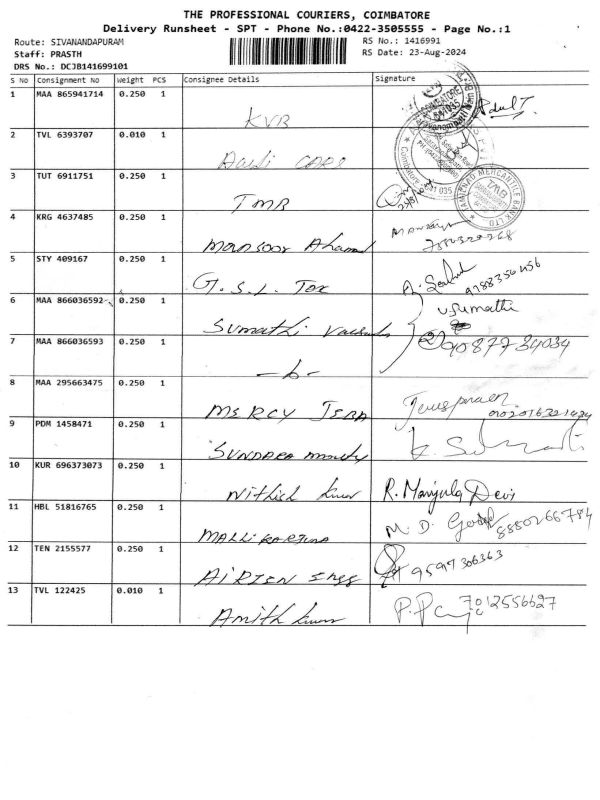 THE PROFESSIONAL COURIERS, COIMBATORE
Delivery Runsheet - SPT - Phone No.:0422-3505555 - Page No.:1
Route: SIVANANDAPURAM RS No.: 1416991
Staff: PRASTH RS Date: 23-Aug-2024
DRS No.: DCJB141699101
S No Consignment No Weight PCS Consignee Details Signature
1 MAA 865941714 0.250 1
KVB
2 TVL 6393707 0.010 1
CARS
3 TUT 6911751 0.250 1
TMB
TAMILNAD MERCANTILE BANK LTD
4 KRG 4637485 0.250 1
Mansoor Ahamed
5 STY 409167 0.250 1
G.S.L. Tax
9788356456
6 MAA 866036592 0.250 1
Sumathi
V. Sumathi
7 MAA 866036593 0.250 1
9087734034
8 MAA 295663475 0.250 1
MERCY JEBA
9 PDM 1458471 0.250 1
SUNDARA
10 KUR 696373073 0.250 1
R. Manjula Devi
11 HBL 51816765 0.250 1
MALLIKARJUNA
M. D.
12 TEN 2155577 0.250 1
9597306363
13 TVL 122425 0.010 1
Amith Kumar
7012556627